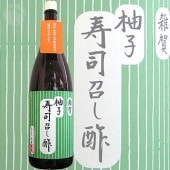 雑賀
柚子
寿司召し酢
雑賀
柚子
寿司召し酢